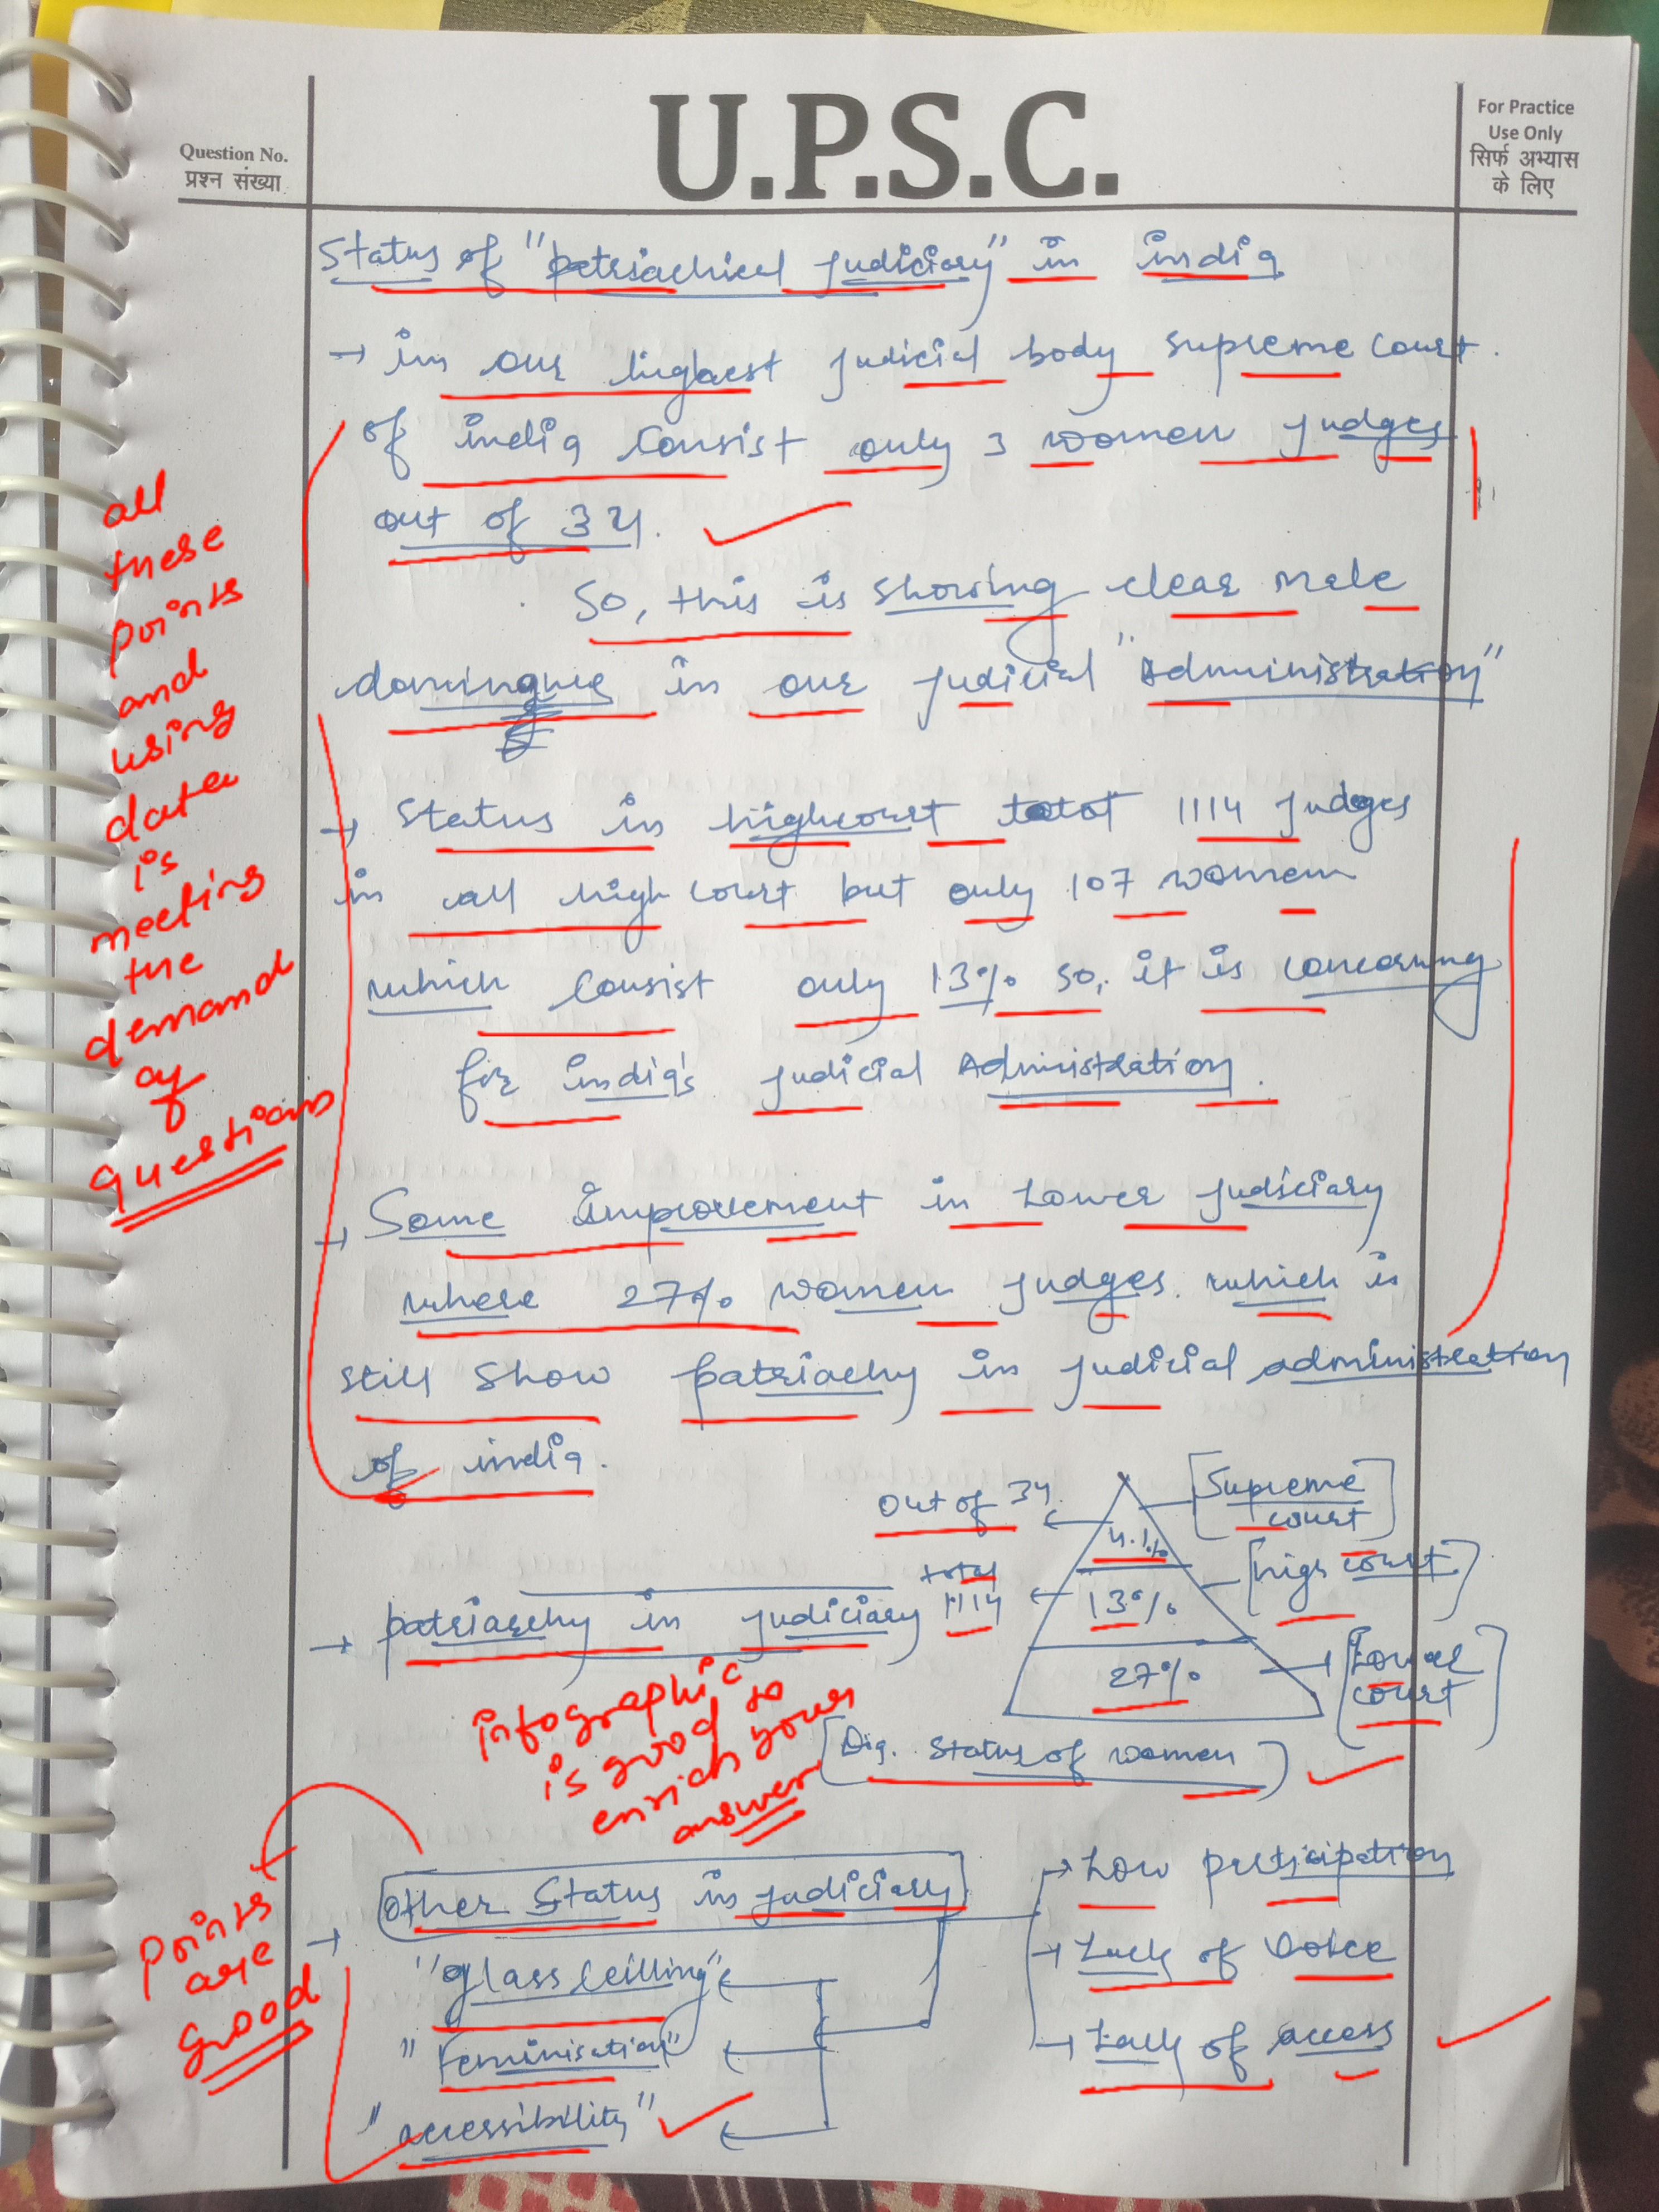 U.P.S.C.
Question No.
प्रश्न संख्या
For Practice
Use Only
सिर्फ अभ्यास
के लिए
Status of "patriachical judiciary" in india
→ in our highest judicial body supreme court.
of india consist only 3 women judges
out of 34.
So, this is showing clear male
in our judicial "Administration"
→ Status in highcourt total 1114 judges
in all high court but only 107 women
which consist only 13% so, it is concerning
for india's judicial Administration.
→ Some improvement in Lower judiciary
where 27% women judges which is
still show patriachy in judicial administration
of india.
all
these
points
and
using
data
is
meeting
the
demand
of
questions
out of 34
Supreme
court
total
1114
13%
court
→ patriarchy in judiciary
27%
court
[Dig. Status of women]
infographic
is good to
enrich your
answer
→ Other Status in judiciary
→ Low participation
"glass ceilling"
→ Lack of Voice
"Feminisation"
→ Lack of access
"accessibility"
points
are
good